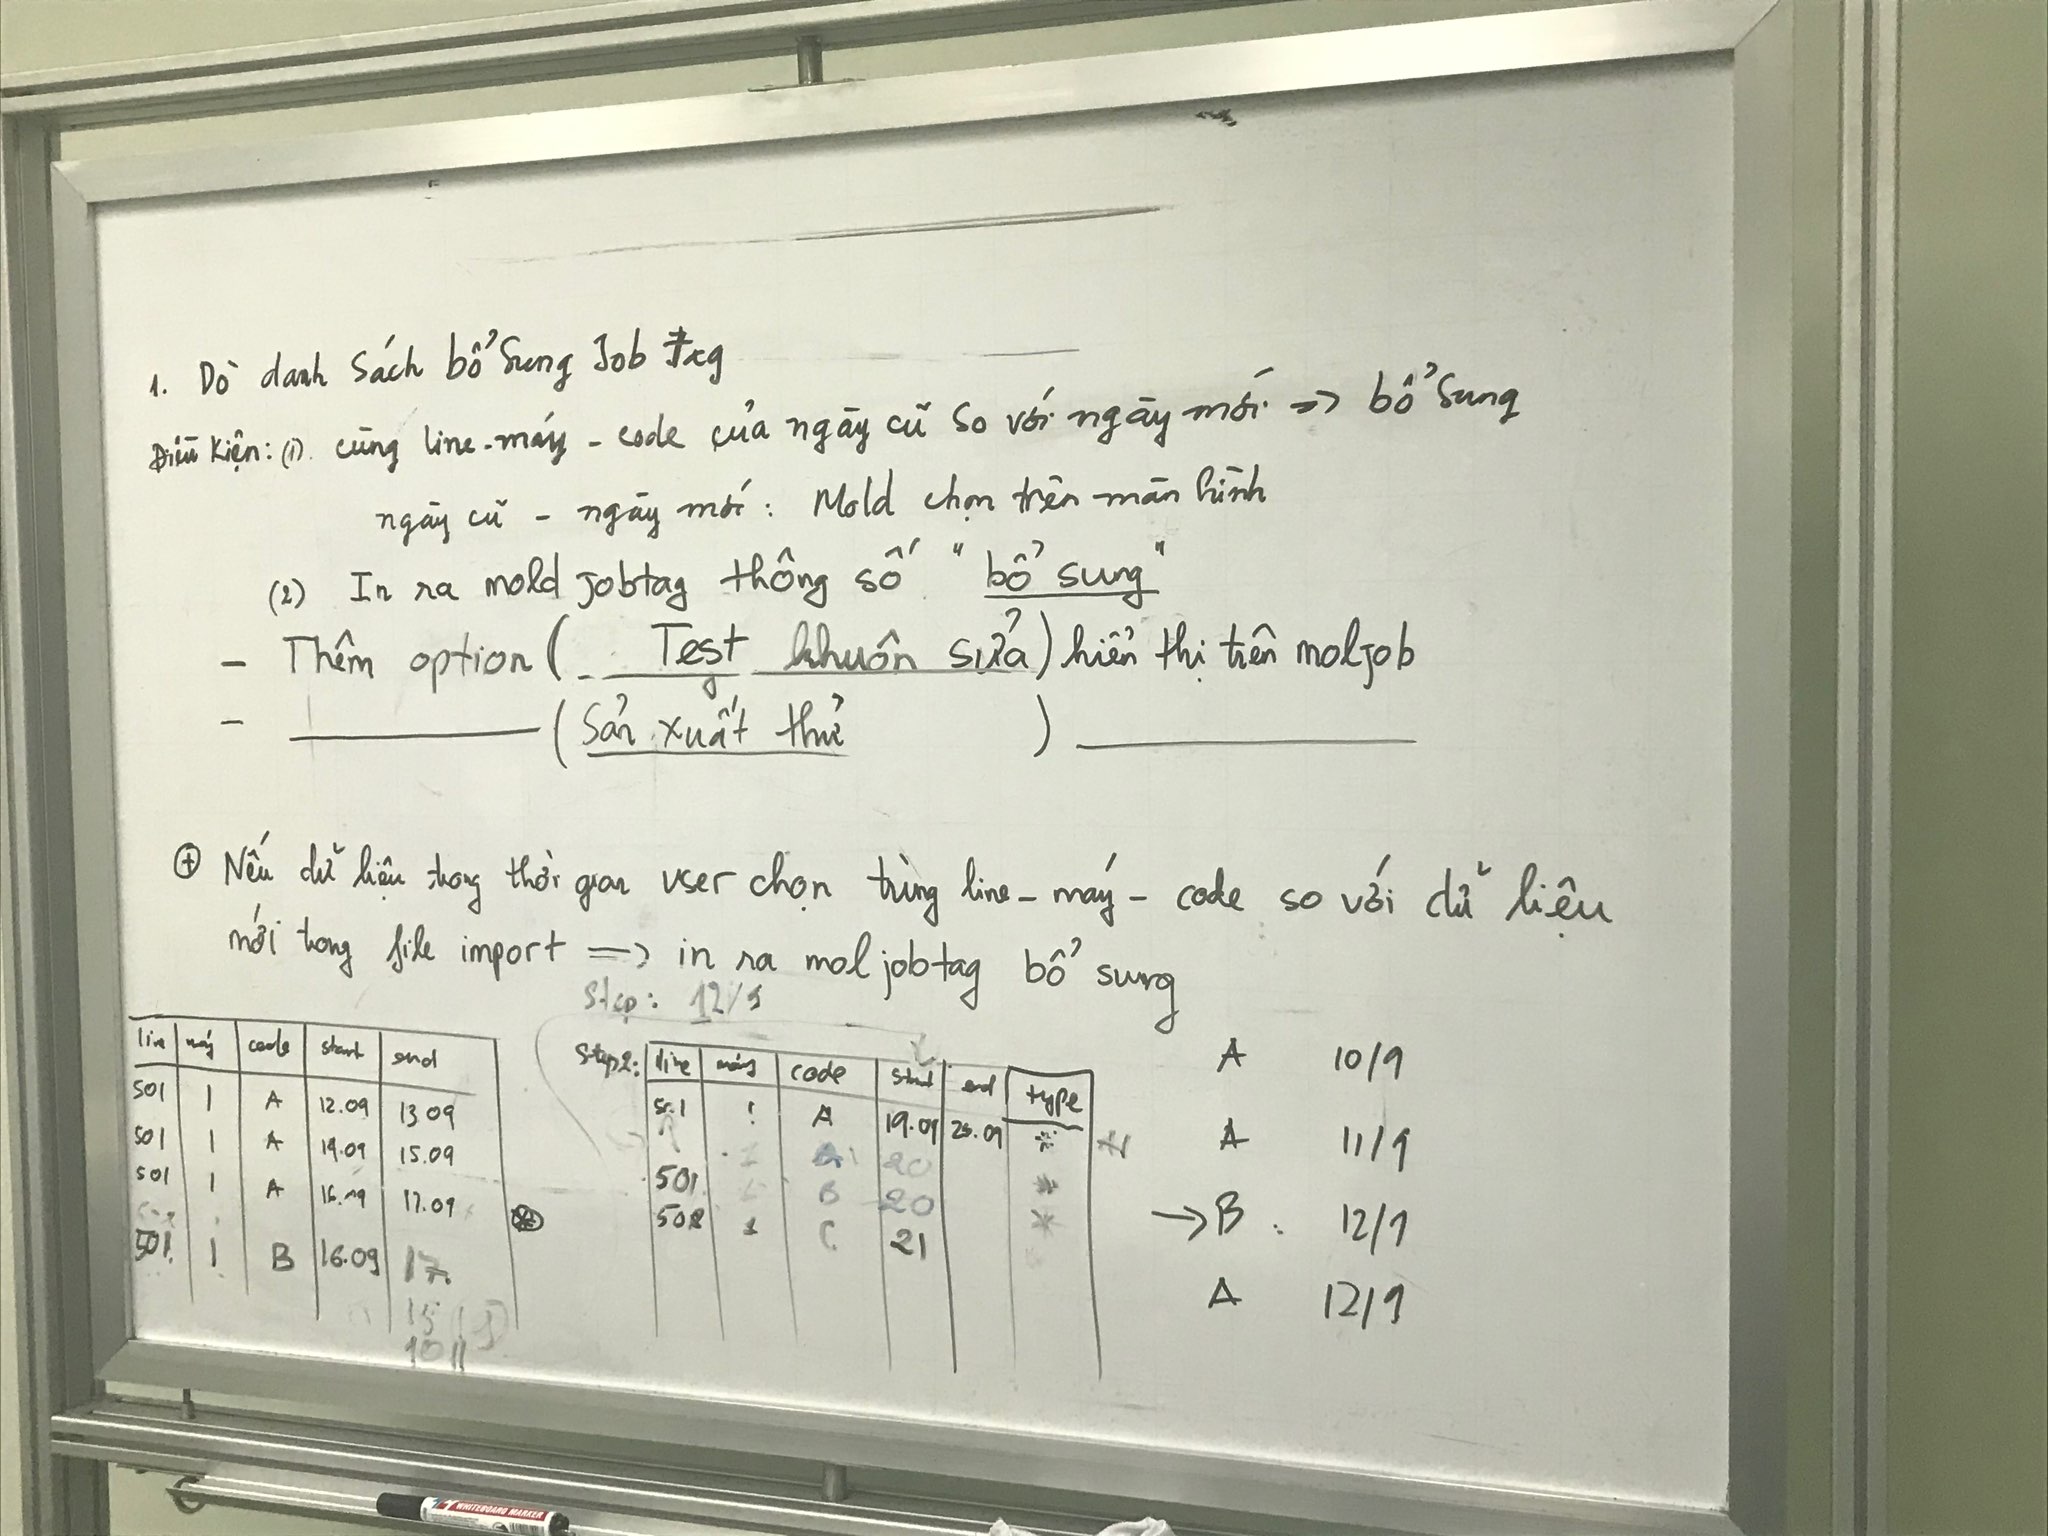 1. Dò danh sách bổ sung Job Tag
Điều kiện: (1). cùng line - máy - code của ngày cũ so với ngày mới => bổ sung
ngày cũ - ngày mới : Mold chọn trên màn hình
(2) In ra mold jobtag thông số "bổ sung"
- Thêm option ( Test khuôn sửa ) hiển thị trên moljob
- ( Sản xuất thử )
+ Nếu dữ liệu trong thời gian user chọn trùng line - máy - code so với dữ liệu
mới trong file import => in ra moljobtag bổ sung
Step: 12/9
line máy code start end
501 1 A 12.09 13.09
501 1 A 14.09 15.09
501 1 A 16.09 17.09
501 1 B 16.09 17.
Step2: line máy code start end type
501 1 A 19.09 *
20
501 B 20 *
502 1 C 21 *
A 10/9
A 11/9
-> B : 12/9
A 12/9
WHITEBOARD MARKER